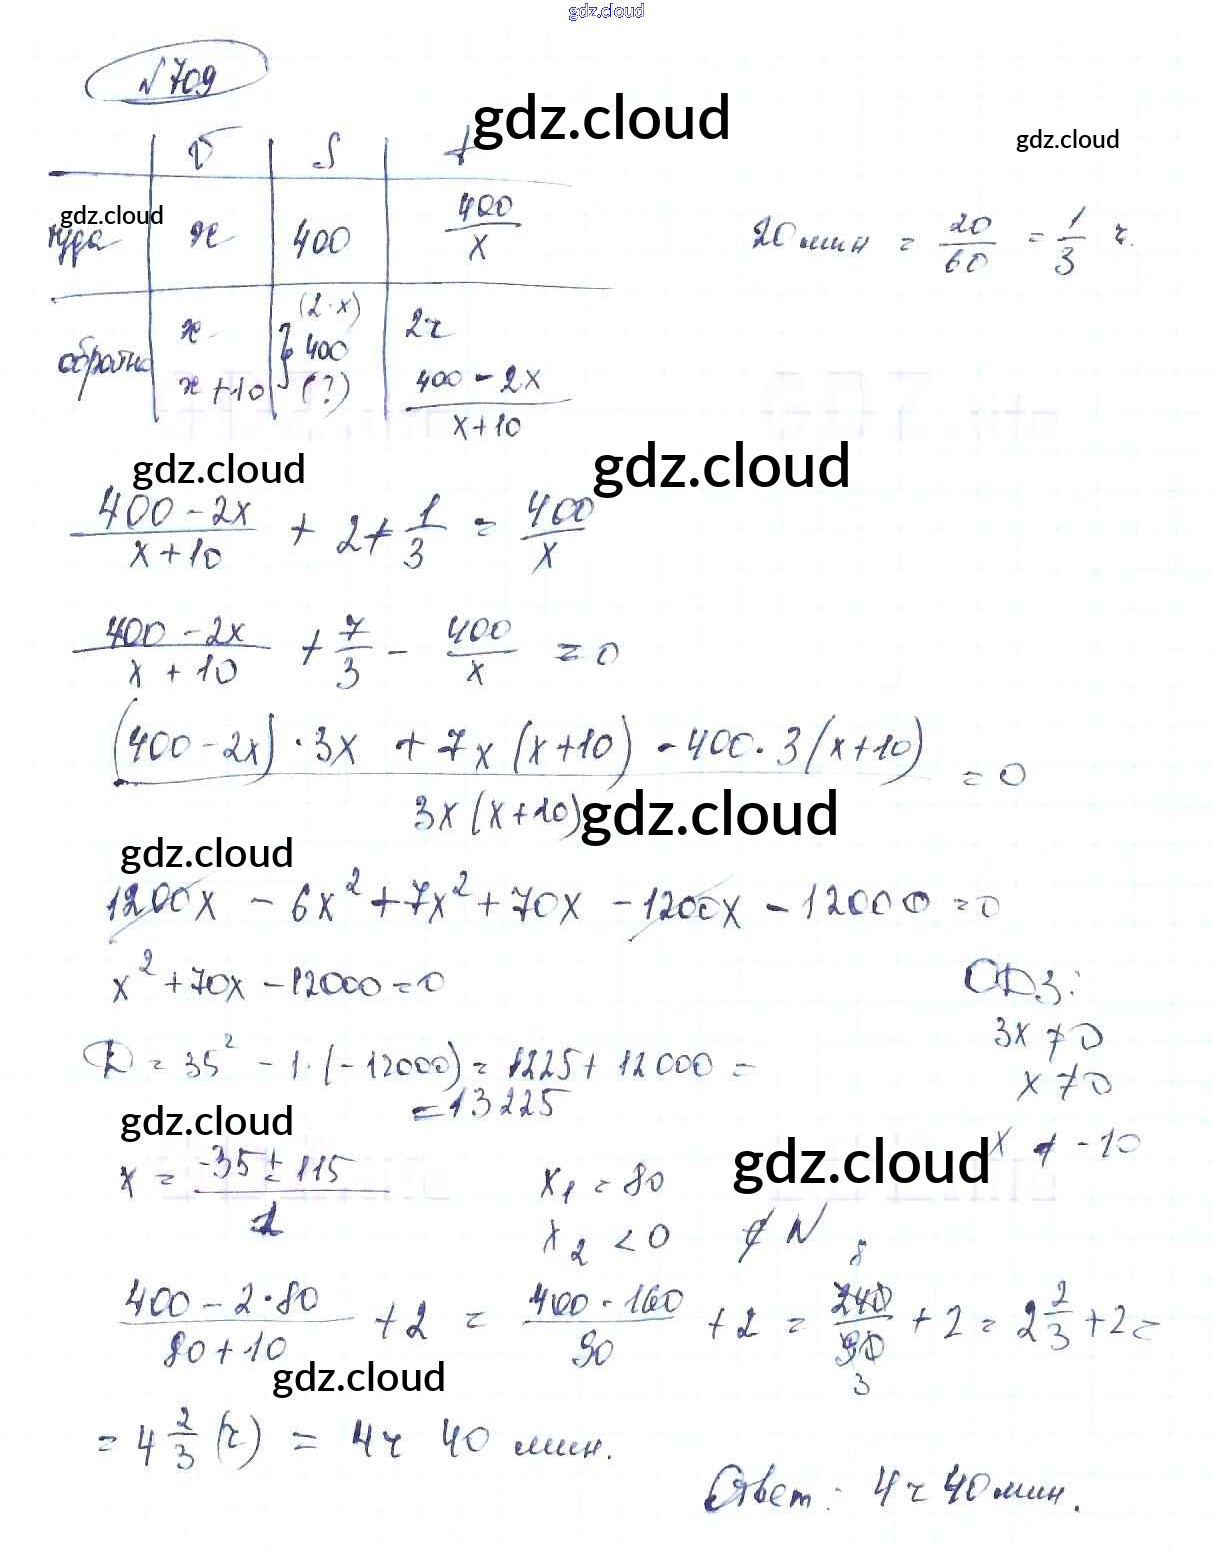 gdz.cloud
№709
gdz.cloud
gdz.cloud
v S t
gdz.cloud
туда x 400 400/x
20 мин = 20/60 = 1/3 ч.
обратно x (2·x) 2ч
400
x+10 (?) (400-2x)/(x+10)
gdz.cloud
gdz.cloud
(400-2x)/(x+10) + 2 + 1/3 = 400/x
(400-2x)/(x+10) + 7/3 - 400/x = 0
((400-2x)·3x + 7x(x+10) - 400·3(x+10))/(3x(x+10)) = 0
gdz.cloud
gdz.cloud
1200x - 6x² + 7x² + 70x - 1200x - 12000 = 0
x² + 70x - 12000 = 0
ОДЗ:
3x ≠ 0
x ≠ 0
x ≠ -10
D = 35² - 1·(-12000) = 1225 + 12000 =
= 13225
gdz.cloud
gdz.cloud
x = (-35 ± 115)/1
x₁ = 80
x₂ < 0 ∉ N
(400-2·80)/(80+10) + 2 = (400-160)/90 + 2 = 240/90 + 2 = 2 2/3 + 2 =
8
3
gdz.cloud
= 4 2/3 (ч) = 4ч 40 мин.
Ответ: 4ч 40 мин.